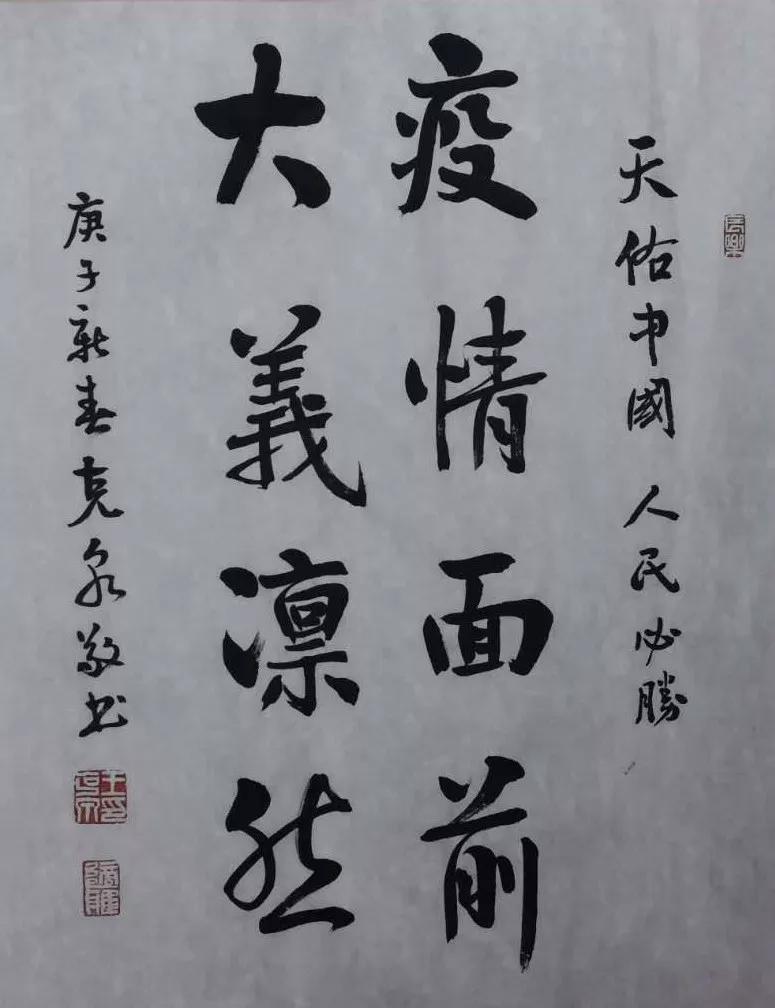 天佑中國 人民必勝
疫情面前
大義凛然
庚子新春克泉敬书